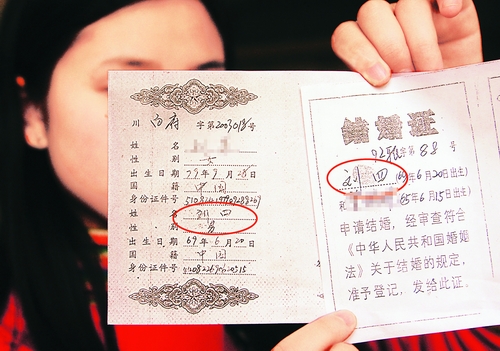 川 内府 字第2003018号
姓 名
性 别 女
出 生 日 期 79年9月28日
国 籍 中国
身份证件号
姓 名 刘四
性 别 男
出 生 日 期 69年6月20日
国 籍 中国
身份证件号
结婚证
字第88号
刘四 (69年6月20日出生)
和 65年6月15日出生)
申请结婚，经审查符合
《中华人民共和国婚姻
法》关于结婚的规定，
准予登记，发给此证。